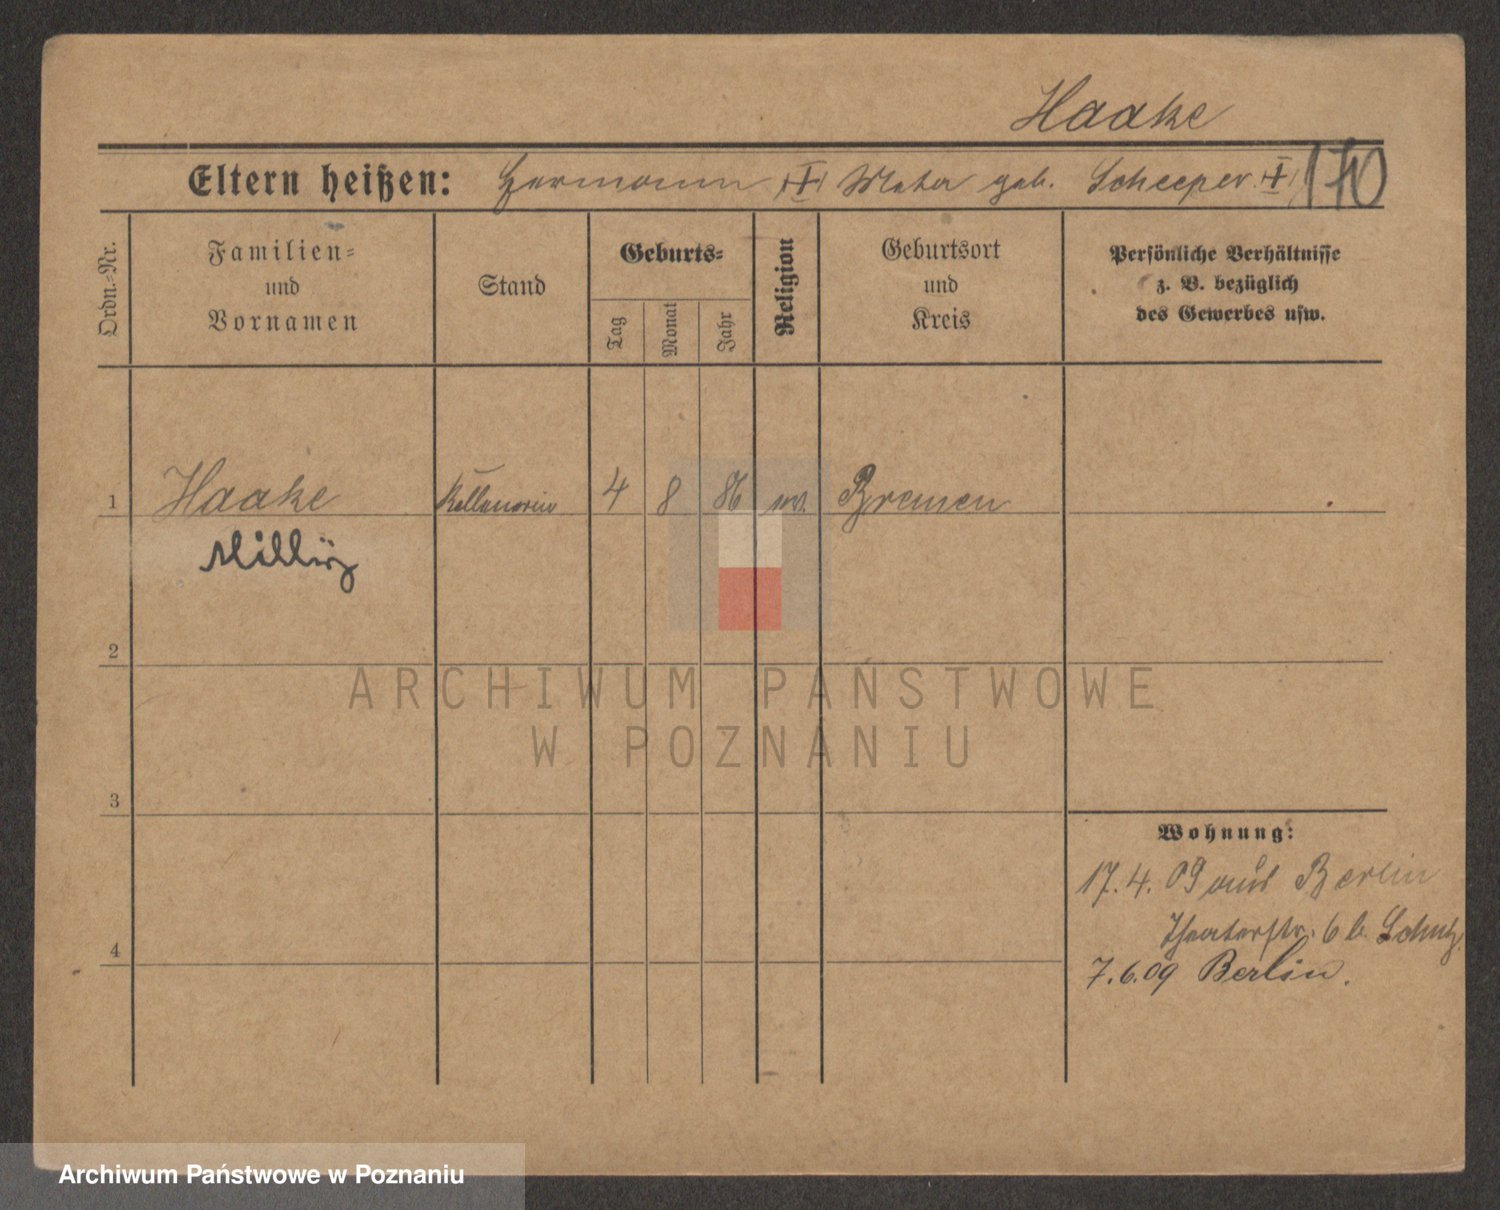 Haake
Eltern heißen: Hermann (†) Meta geb. Scheeper (†) 170
Ordn.-Nr.
Familien-
und
Vornamen
Stand
Geburts-
Tag
Monat
Jahr
Religion
Geburtsort
und
Kreis
Persönliche Verhältnisse
z. B. bezüglich
des Gewerbes usw.
1 Haake Kellnerin 4 8 86 ev. Bremen
2
ARCHIWUM PAŃSTWOWE
W POZNANIU
3
Wohnung:
17.4.09 aus Berlin
Theaterstr. 6 b. Schulz
4
7.6.09 Berlin.
Archiwum Państwowe w Poznaniu